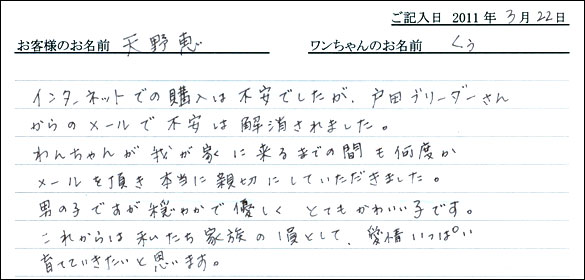 ご記入日 2011 年 3月 22日
お客様のお名前 天野恵 ワンちゃんのお名前 くぅ
インターネットでの購入は不安でしたが、戸田ブリーダーさん
からのメールで不安は解消されました。
わんちゃんが我が家に来るまでの間も何度か
メールを頂き本当に親切にしていただきました。
男の子ですが穏やかで優しくとてもかわいい子です。
これからは私たち家族の1員として、愛情いっぱい
育てていきたいと思います。